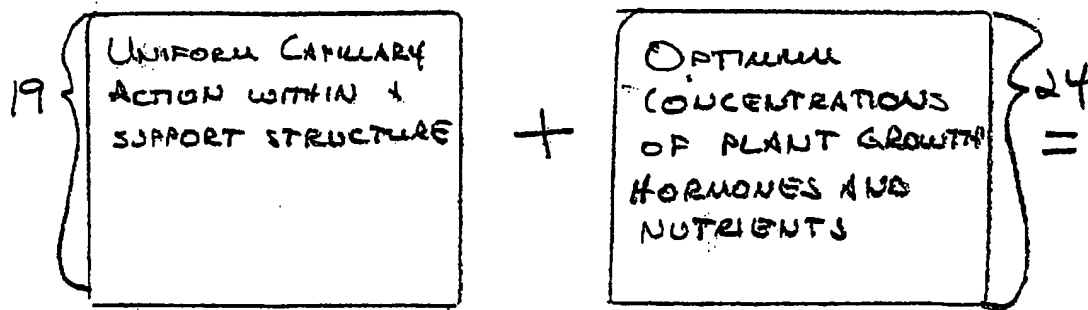 19
UNIFORM CAPILLARY
ACTION WITHIN A
SUPPORT STRUCTURE
+
OPTIMUM
CONCENTRATIONS
OF PLANT GROWTH
HORMONES AND
NUTRIENTS
24
=